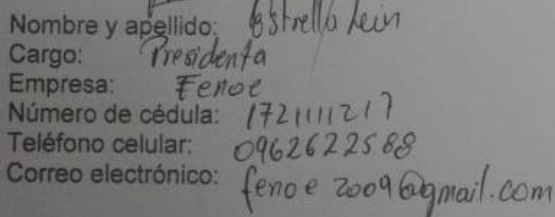 Nombre y apellido: Estrella Lein
Cargo: Presidenta
Empresa: Fenoe
Número de cédula: 1721111217
Teléfono celular: 0962622588
Correo electrónico: fenoe2009@gmail.com